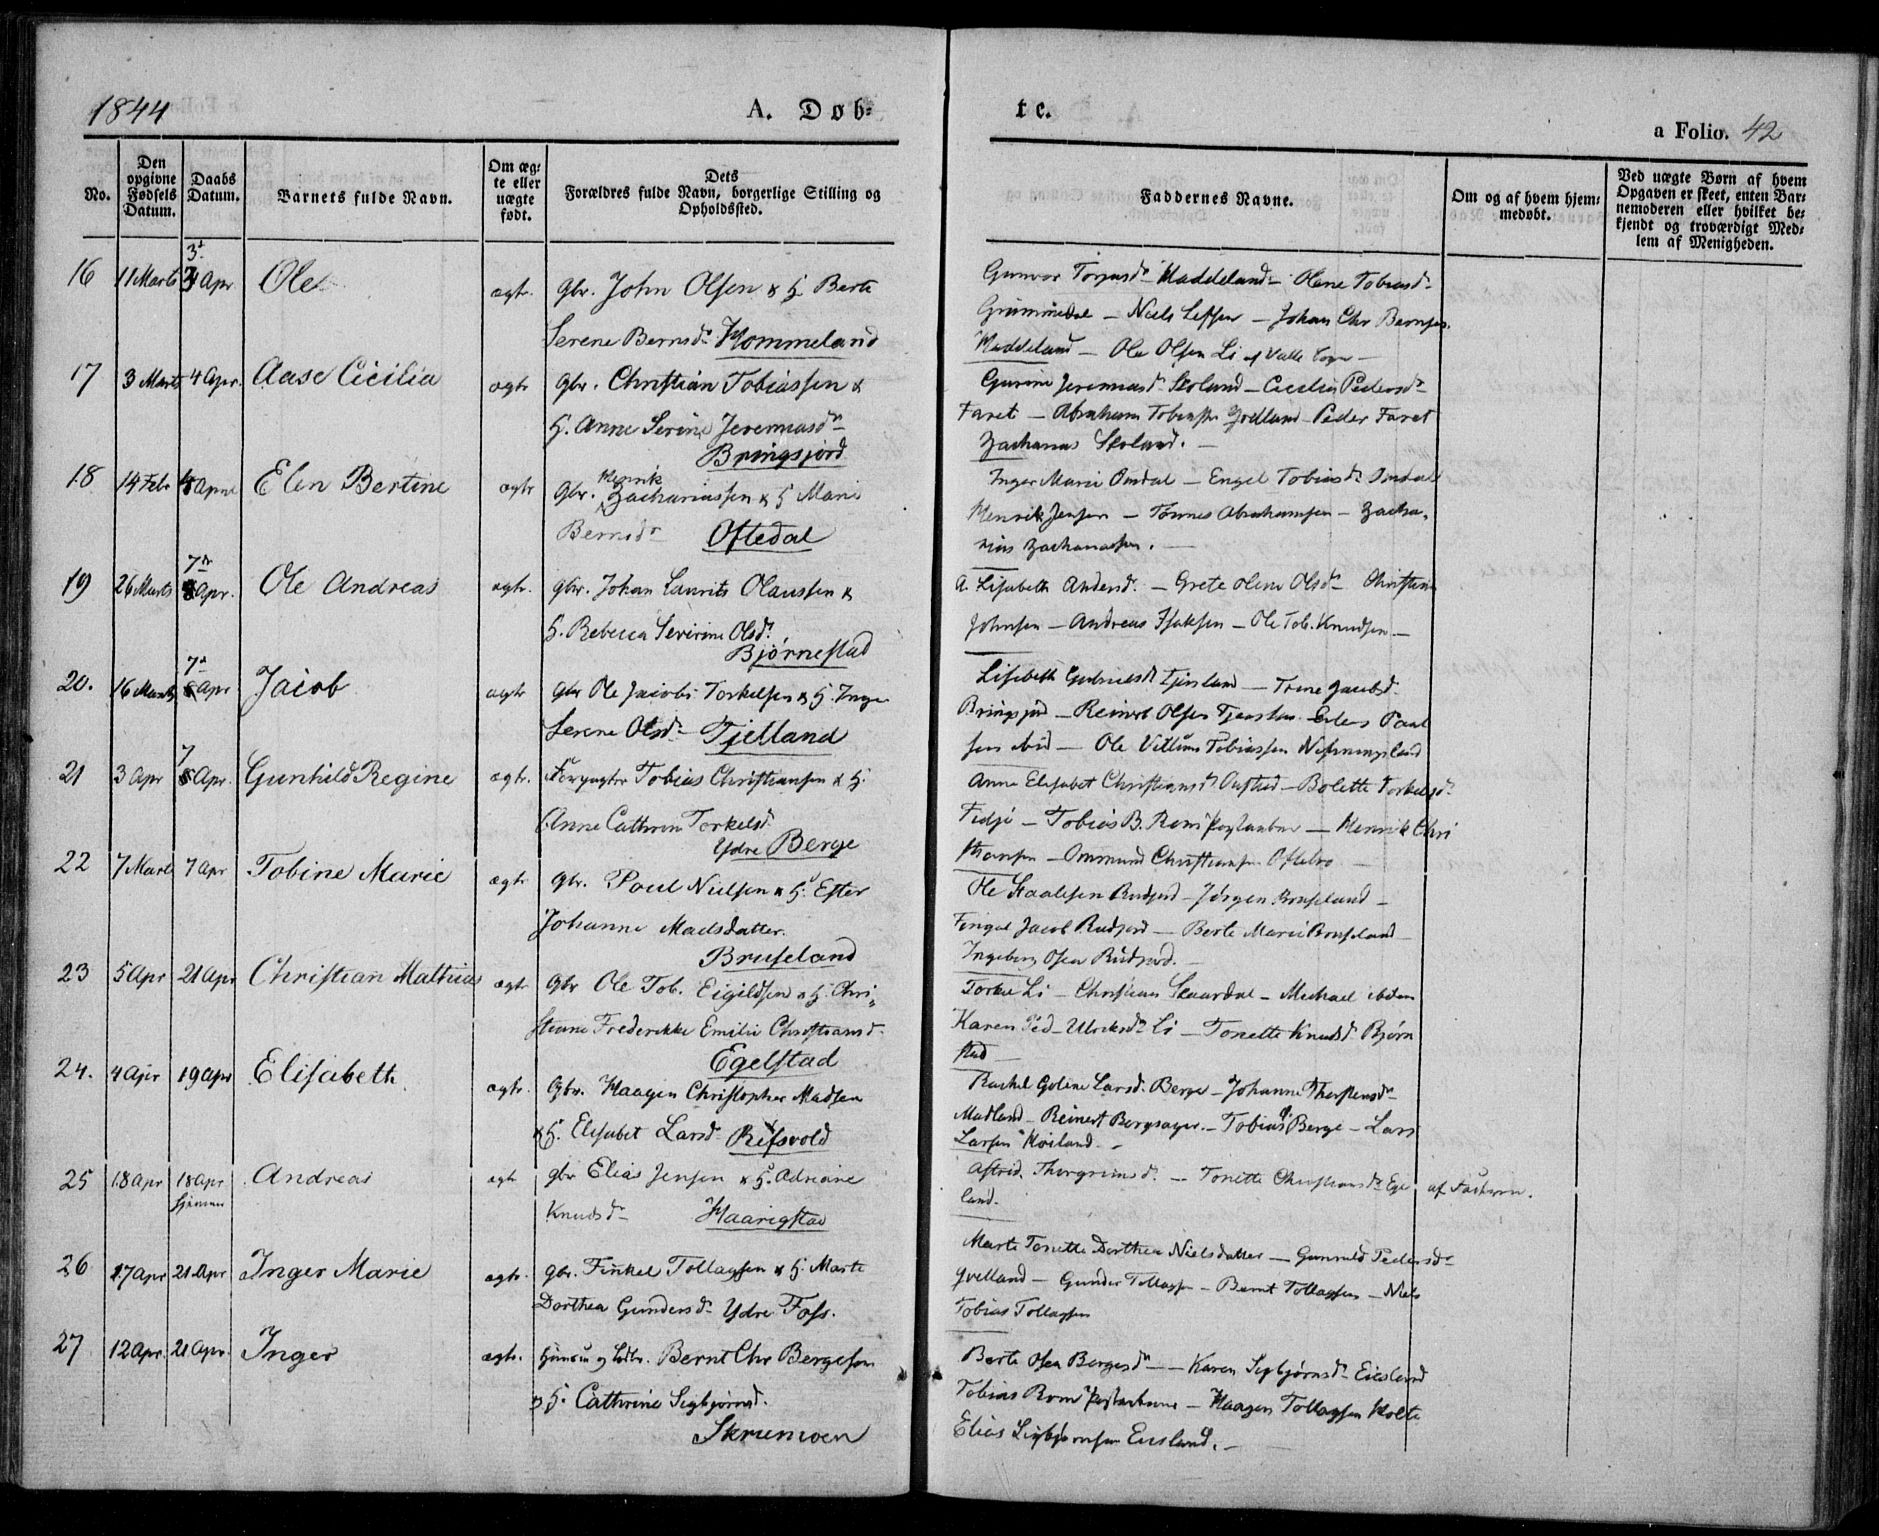 1844
A. Døb-
te.
a Folio. 42
No.
Den opgivne Fødsels Datum.
Daabs Datum.
Barnets fulde Navn.
Om æg- te eller uægte født.
Dets Forældres fulde Navn, borgerlige Stilling og Opholdssted.
Faddernes Navne.
Om og af hvem hjem- medøbt.
Ved uægte Børn af hvem Opgaven er skeet, enten Bar- nemoderen eller hvilket be- kjendt og troværdigt Med- lem af Menigheden.
16 11 Marts Apr Ole ægte. gbr. John Olsen & H. Berte
Serene Berns d. Hommeland
Gunvor d. Maddeland – Olene Tobias d.
Grummedal – Niels – Johan Chr Berns
Maddeland – Ole Olsen Li af Valle Sogn –
17 3 Marts 4 Apr. Aase Cicilia ægte gbr. Christian Tobiassen &
H. Anne Serine Jeremias d.
Bringsjord
Gurine Jeremias d. Skoland – Cecilia Peders d.
Faret – Abraham – Peder Faret
Zacharias Skoland. –
18 14 Febr Apr Elen Bertine ægte gbr. Henrik Zachariassen & H Marie
Berns d. Oftedal
Inger Marie Omdal – Engel Tobias d. Omdal
Henrik Jensen – Tønnes Abrahamsen – Zacha-
rias Zachariassen. –
19 26 Marts 7de Apr. Ole Andreas ægte. gbr. Johan Laurits Olaussen &
H. Rebecca Severine Ols d.
Bjørnestad
A. Lisabeth Anders d. – Grete Olene Ols d. Christian
Johnsen – Andreas Isaksen – Ole Tob. Knudsen –
20. 16 Marts 7de Apr Jacob ægte gbr Ole Jacob Torkelsen & H. Inger
Serene Ols d. Tjelland
Lisabeth Gabriels d. – Trine Jacobs d.
Bringsjord – Reinert Olsen – Paul
sen ibid – Ole Villum Tobiassen
21 3 Apr 7 Apr. Gunhild Regine ægte. Tobias Christiansen & H.
Anne Cathrine Torkels d.
Ydre Berge
Anne Elisabet Christians d. – Bolette Torkels d.
Fidje – Tobias B. Rom – Henrik Chri
stiansen – Ommund Christiansen Oftebro –
22 7 Marts 7 Apr Tobine Marie ægte gbr. Poul Nielsen & H. Ester
Johanne Madsdatter.
Bruseland
Ole Staalesen Rudjord – Jørgen Bruseland –
Fingal Jacob Rudjord – Berte Marie Bruseland
Ingeborg Osea Rudjord. –
23 5 Apr 21 Apr Christian Mathias ægte gbr Ole Tob. Eigildsen & H. Chri-
stiane Frederikke Emilie Christians d.
Egelstad
Torkel Li – Christian Skaardal – Michael ibidem
Karen Ulriks d. Li – Tonette Knuds d. Bjørn
stad
24. 4 Apr 19 Apr Elisabeth ægte. Gbr. Haagen Christopher Madsen
& H. Elisabet Lars d. Refsvold
Rachel Goline Lars d. Berge – Johanne d.
Madland – Reinert Bergsager – Tobias Berge – Lars
Larsen Høiland. –
25 18 Apr 18 Apr hjemme Andreas ægte gbr Elias Jensen & H. Adriane
Knuds d. Haarigstad
Astrid Thorgrims d. – Tonette Christians d. Ege
land.
af Faderen.
26 17 Apr 21 Apr Inger Marie ægte. gbr. Finkel Tollagsen & H. Marte
Dorthea Gunders d. Ydre Foss.
Marte Tonette Dorthea Nielsdatter – Gunvald Peders d.
– Gunder Tollagsen – Bernt Tollagsen – Niels
Tobias Tollagsen
27 12 Apr. 21 Apr. Inger ægte. Bernt Chr Bergesen
& H. Cathrine Sigbjørns d.
Skrumoen
Berte Osea Berges d. – Karen Sigbjørns d. Eiesland
Tobias Rom – Haagen Tollagsen Holte
Elias Sigbjørnsen Eiesland. –